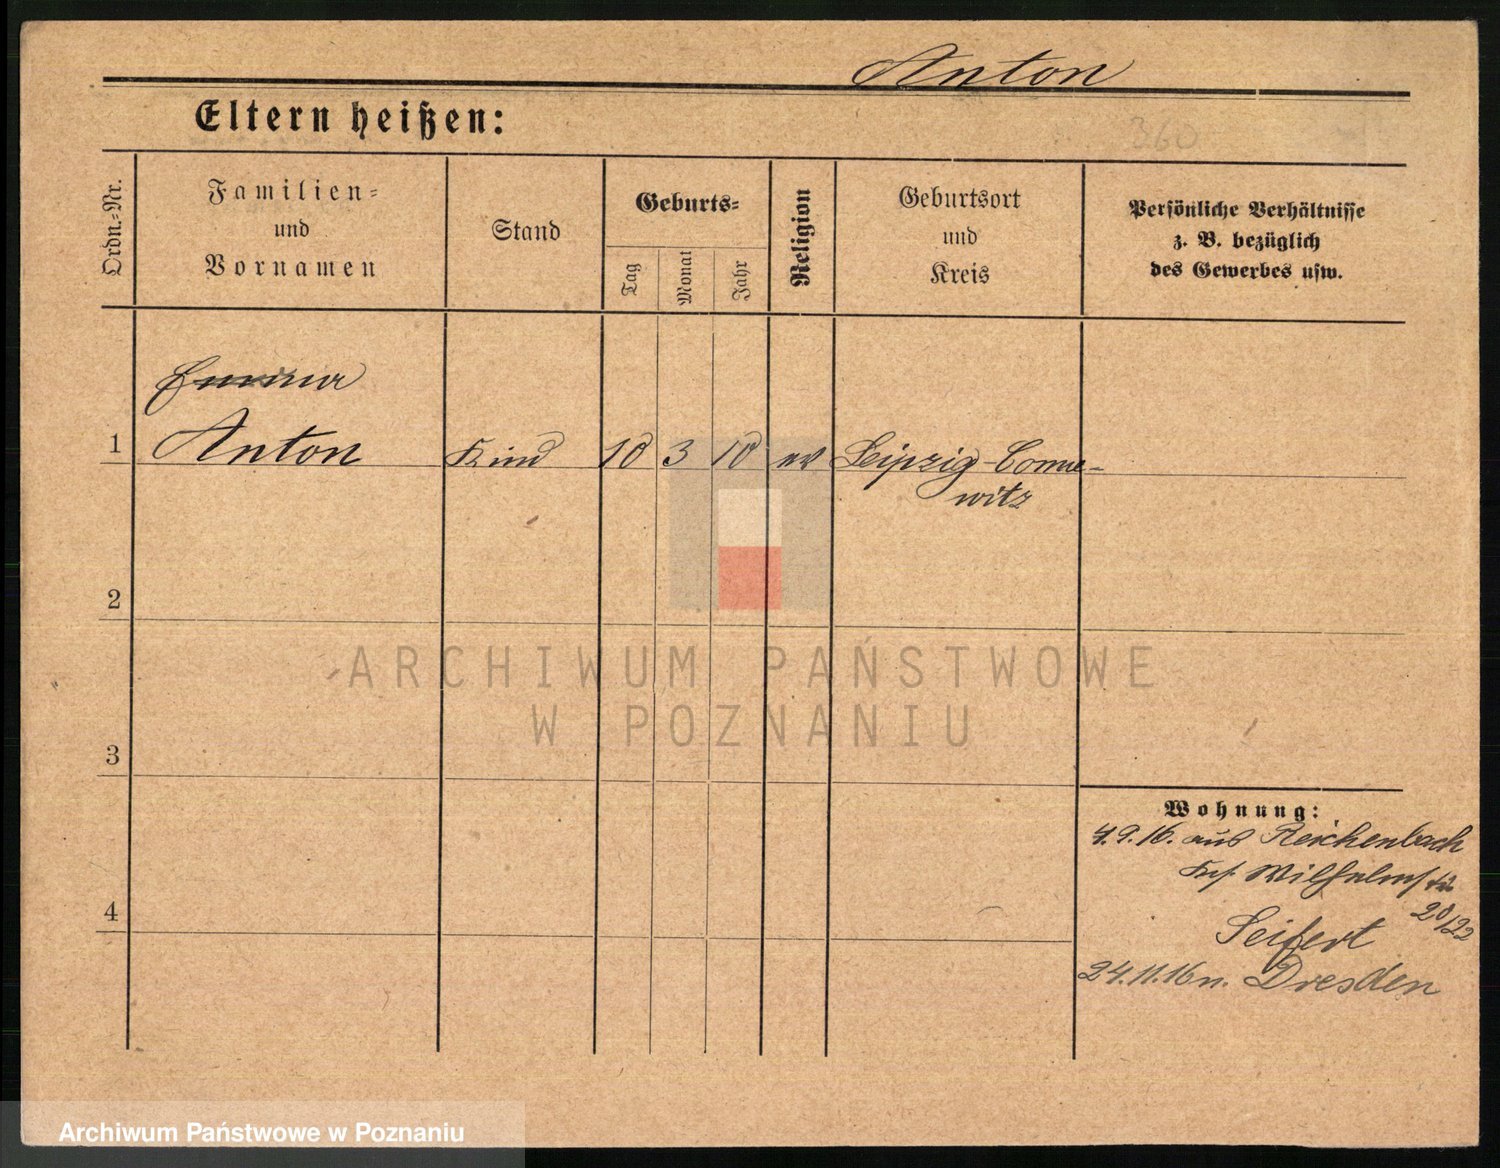 Anton
Eltern heißen:
360
Ordn.=Nr.
Familien=
und
Vornamen
Stand
Geburts=
Tag
Monat
Jahr
Religion
Geburtsort
und
Kreis
Persönliche Verhältnisse
z. B. bezüglich
des Gewerbes usw.
1
Anton Kind 10 3 10 ev Leipzig-Conne-
witz
2
3
4
Wohnung:
4.9.16. aus Reichenbach
Wilhelmstr
20/22
Seifert
24.11.16 n. Dresden
ARCHIWUM PAŃSTWOWE
W POZNANIU
Archiwum Państwowe w Poznaniu